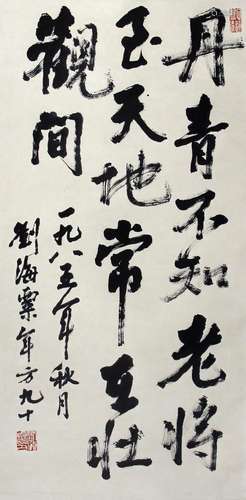 丹青不知老将
至天地常在壮
觀間
一九八五年秋月
劉海粟年方九十